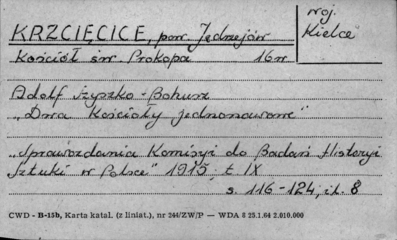 KRZCIĘCICE, pow. Jędrzejów
woj. Kielce
Kościół św. Prokopa 16 w
Adolf Szyszko-Bohusz
"Dwa Kościoły jednonawowe"
"Sprawozdania Komisyi do Badań Historyi
Sztuki w Polsce" 1915, t. IX
s. 116-124, il. 8
CWD - B-15b, Karta katal. (z liniat.), nr 344/ZW/P — WDA 8 25.1.64 2.010.000